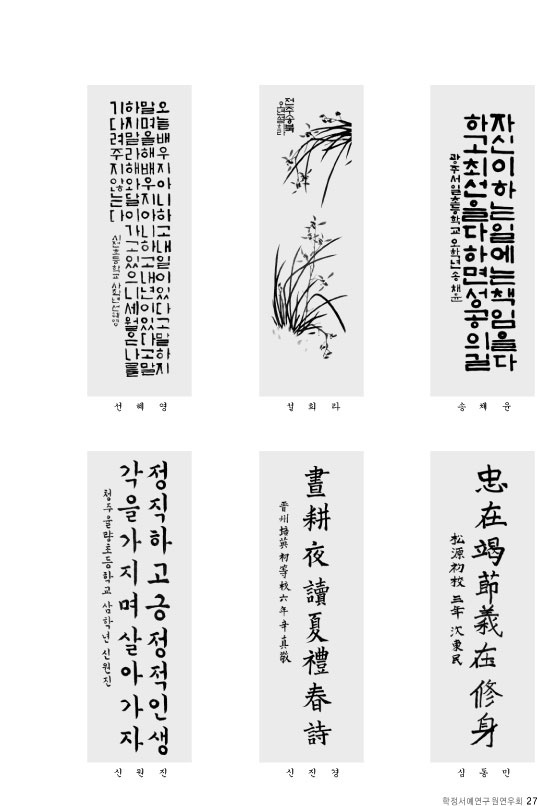 오늘배우지아니하고내일이있다고말하지
말며올해배우지아니하고내년이있다고말
하지말라해와달이가고있으니세월은나를
기다려주지않는다
초등학교 사학년 선혜영
선 혜 영
설 희 라
자신이하는일에는책임을다
하고최선을다하면성공의길
광주서일초등학교 오학년 송채윤
송 채 윤
정직하고긍정적인생
각을가지며살아가자
청주율량초등학교 삼학년 신원진
신 원 진
晝耕夜讀夏禮春詩
晋州培英初等校六年辛真敬
신 진 경
忠在竭節義在修身
松源初校 三年 沈東民
심 동 민
학정서예연구원연우회 27